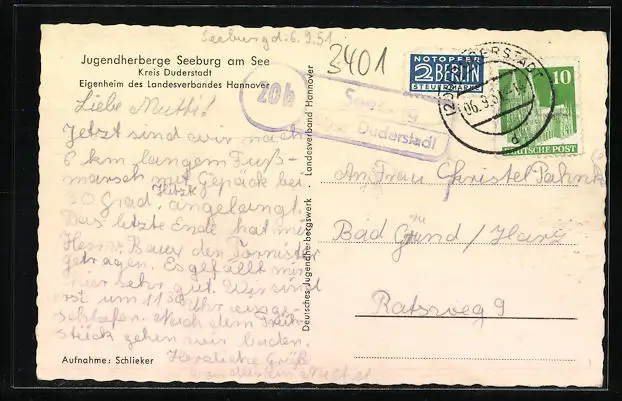 Seeburg d. 6.9.51
3401
Jugendherberge Seeburg am See
Kreis Duderstadt
Eigenheim des Landesverbandes Hannover
Liebe Mutti!
Jetzt sind wir nach
6 km langem Fuß-
marsch mit Gepäck bei
30 Grad Hitze angelangt.
Das letzte Ende hat mir
Herr v. Baur den Tornister
getragen. Es gefällt mir
hier sehr gut. Wir sind
erst um 11 30 Uhr einge-
schlafen. Nach dem Früh-
stück gehen wir baden.
Herzliche Grüße
von deinem
Aufnahme: Schlieker
Deutsches Jugendherbergswerk · Landesverband Hannover
20b
Seeburg
Duderstadt
NOTOPFER
2 BERLIN
STEUERMARKE
DUDERSTADT
06.9.5
10
DEUTSCHE POST
An Frau Christel Pahnke
Bad Grund / Harz
Ratsweg 9